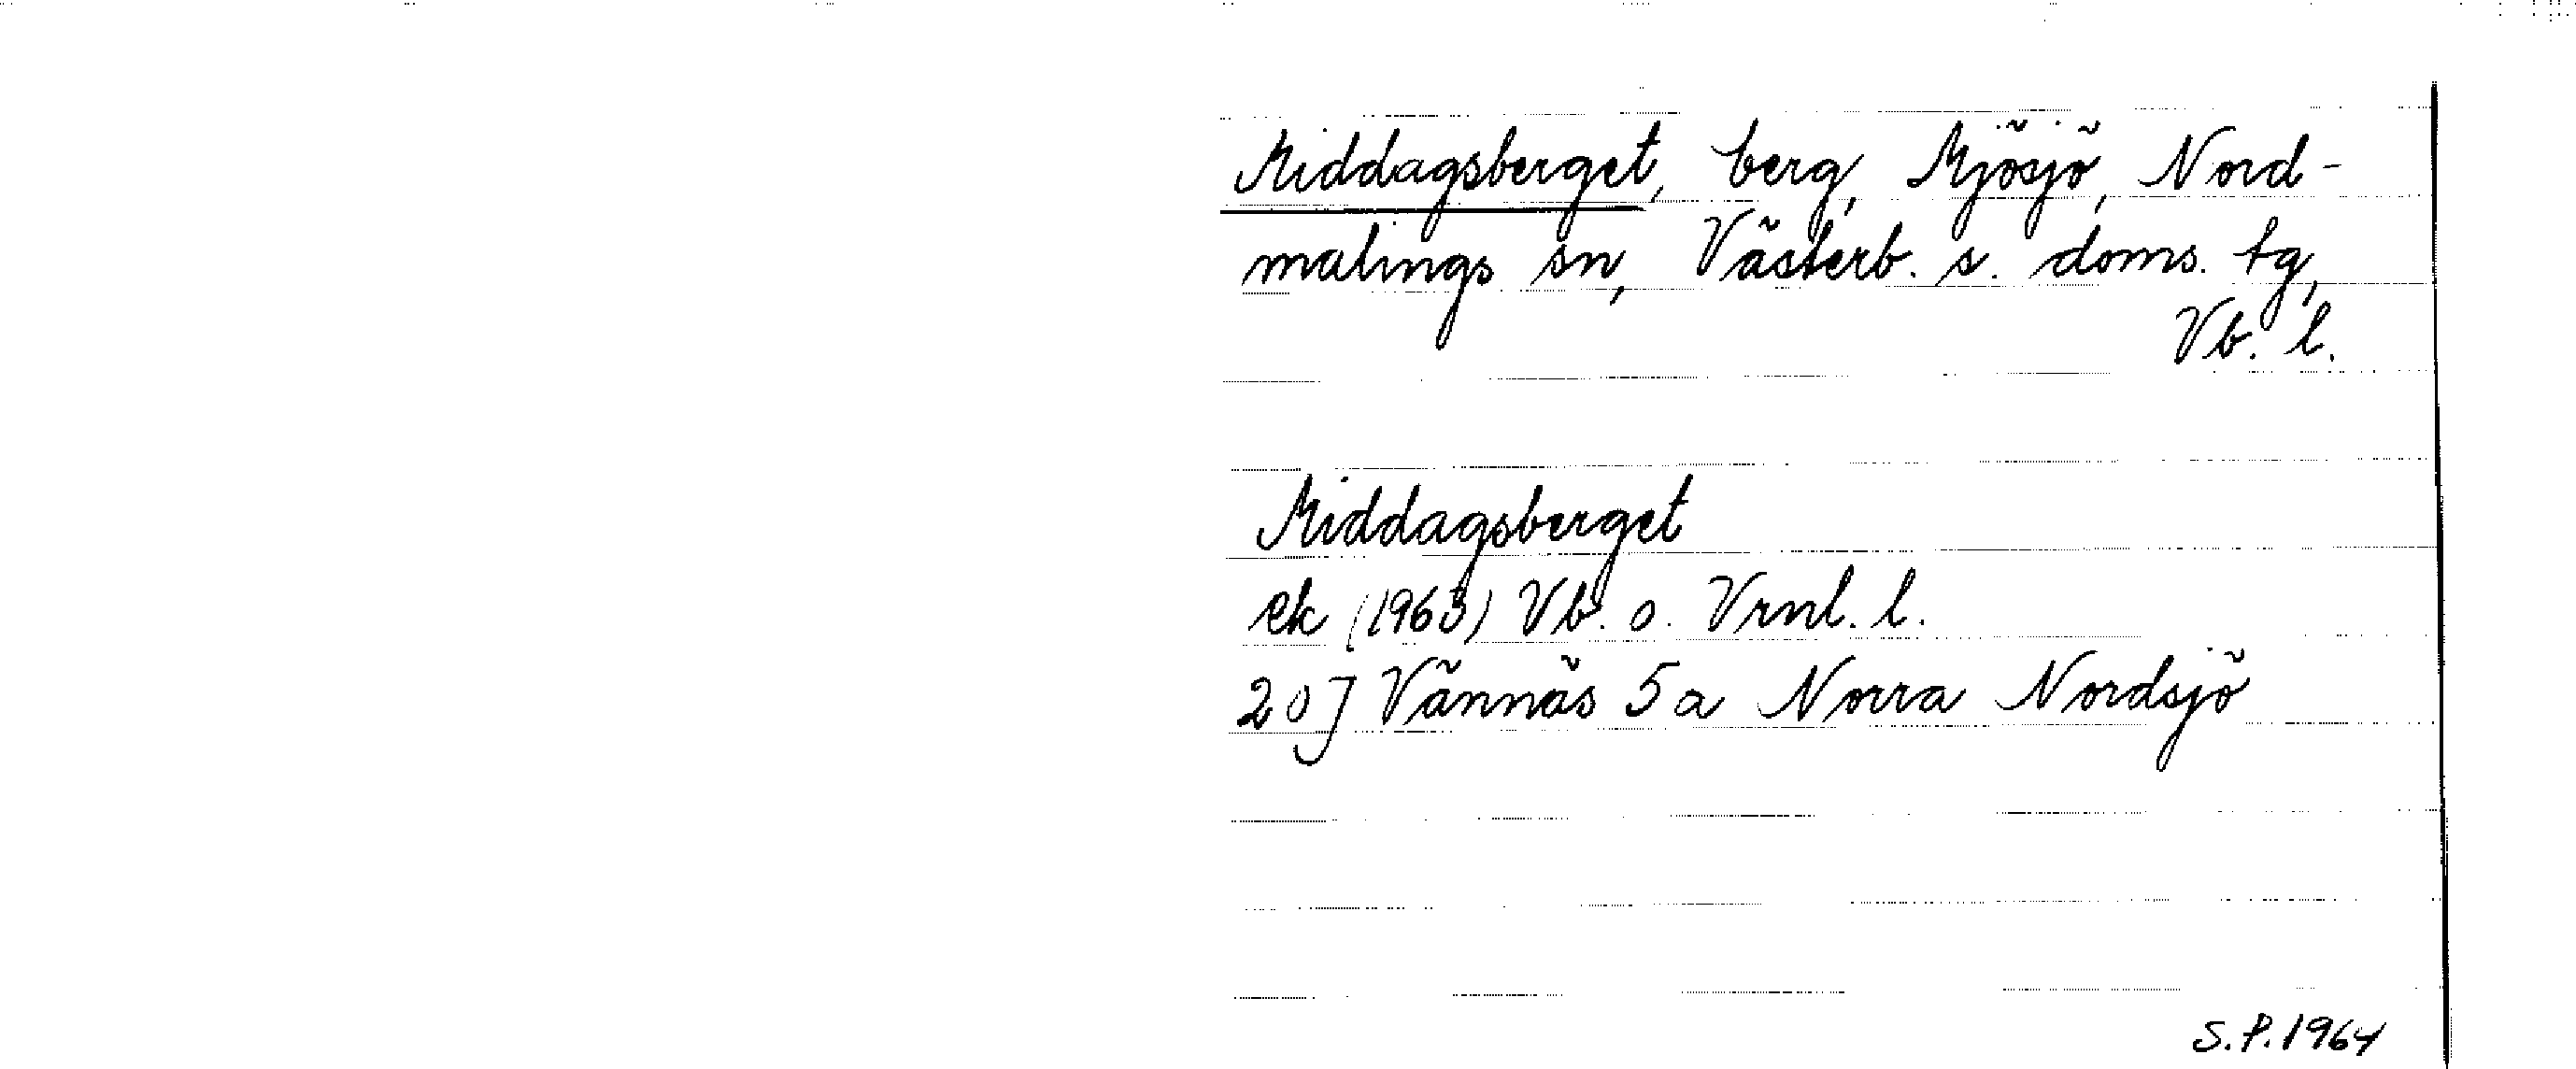 Middagsberget, berg, Mjösjö, Nord-
malings sn, Västerb. s. doms. tg,
Vb. l.
Middagsberget
ek (1963) Vb. o. Vrnl. l.
20J Vännäs 5a Norra Nordsjö
S.P. 1964